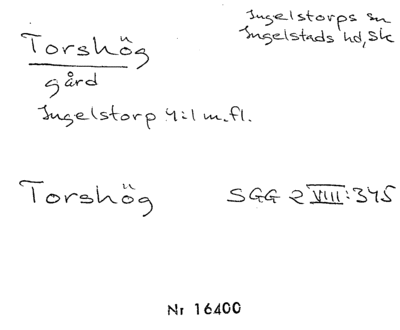 Ingelstorps sn
Ingelstads hd, Sk
Torshög
gård
Ingelstorp 4:1 m.fl.
Torshög SGG 2 VIII:345
Nr 16400